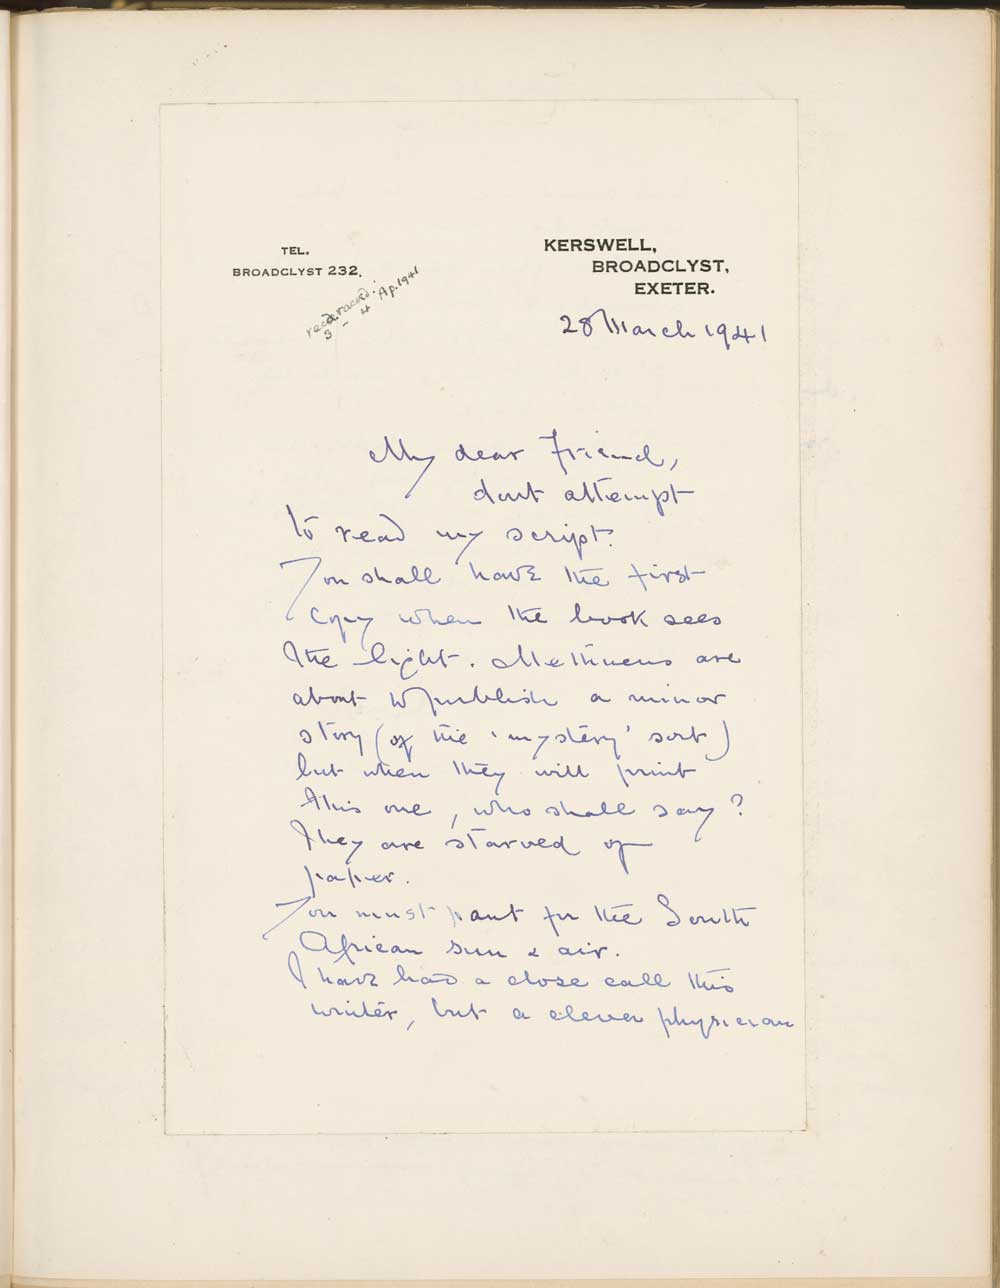 TEL.
BROADCLYST 232.
KERSWELL,
BROADCLYST,
EXETER.
recd &
3 - 4 Ap. 1941
28 March 1941
My dear Friend,
dont attempt
to read my script.
You shall have the first
copy when the book sees
the light. Methuens are
about to publish a minor
story (of the 'mystery' sort)
but when they will print
this one, who shall say?
They are starved of
paper.
You must pant for the South
African sun & air.
I have had a close call this
winter, but a clever physician